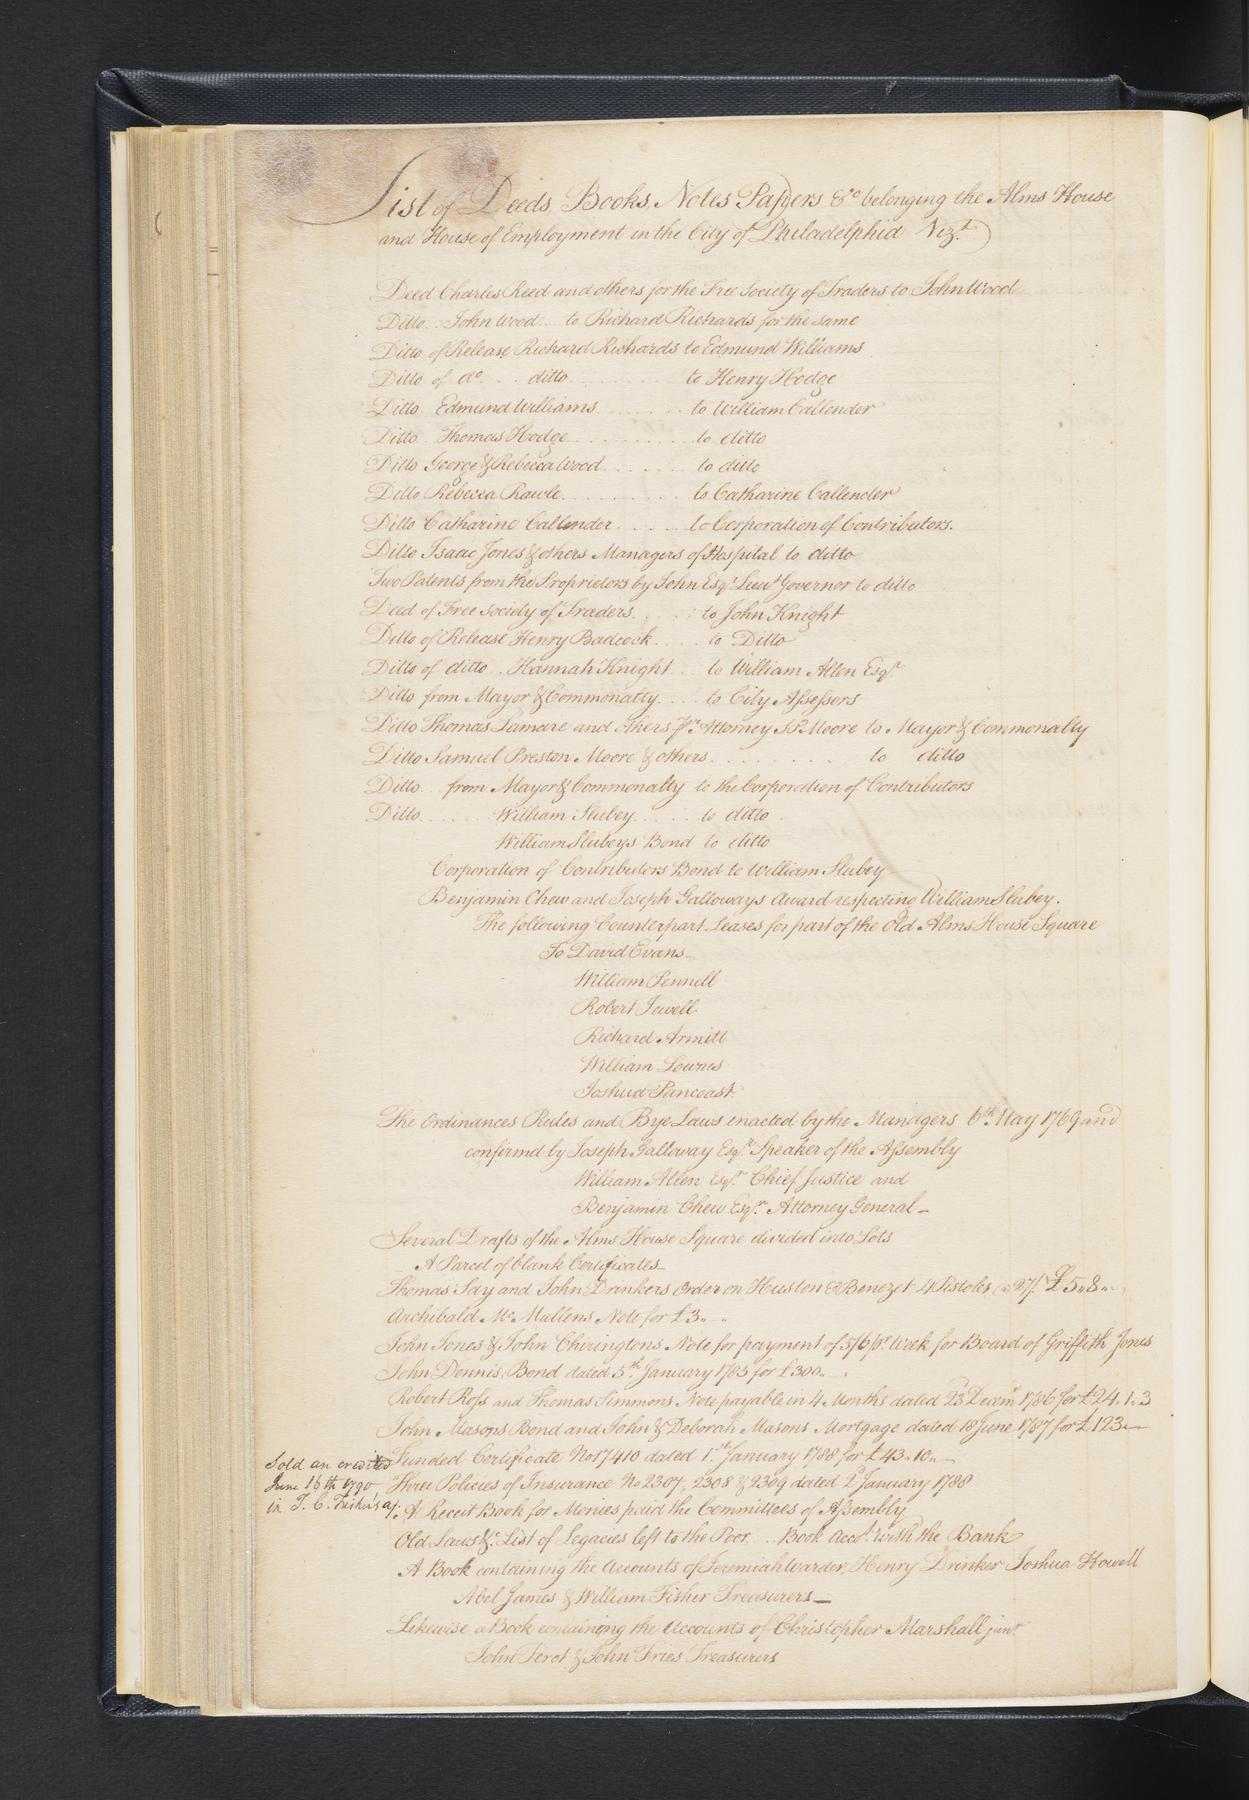 List of Deeds, Books, Notes Papers &c belonging the Alms House
and House of Employment in the City of Philadelphia Vizt.
Deed Charles Reed and others for the Free Society of Traders to John Wood
Ditto.. John Wood... to Richard Richards for the same
Ditto of Release Richard Richards to Edmund Williams
Ditto of do.... ditto............ to Henry Hodge
Ditto Edmund Williams........ to William Callender
Ditto Thomas Hodge............ to ditto
Ditto George & Rebecca Wood...... to ditto
Ditto Rebecca Rawle............ to Catharine Callender
Ditto Catharine Callender...... to Corporation of Contributors.
Ditto Isaac Jones & others Managers of Hospital to ditto
Two Patents from the Proprietors by John Esqr. Lieut Governor to ditto
Deed of Free Society of Traders...... to John Knight
Ditto of Release Henry Badcock..... to Ditto
Ditto of ditto.. Hannah Knight... to William Allen Esqr.
Ditto from Mayor & Commonalty.... to City Assessors
Ditto Thomas and Attorney S P. Moore to Mayor & Commonalty
Ditto Samuel Preston Moore & others......... to ditto
Ditto... from Mayor & Commonalty to the Corporation of Contributors
Ditto....... William Slubey...... to ditto
William Slubeys Bond to ditto
Corporation of Contributors Bond to William Slubey
Benjamin Chew and Joseph Galloways award respecting William Slubey.
The following Counterpart Leases for part of the Old Alms House Square
To David Evans
William Pennell
Robert Jewell
Richard Armitt
William Lownes
Joshua Pancoast.
The Ordinances Rules and Bye Laws enacted by the Managers 6th May 1769 and
confirmd by Joseph Galloway Esqr. Speaker of the Assembly
William Allen Esqr. Chief Justice and
Benjamin Chew Esqr. Attorney General_
Several Drafts of the Alms House Square divided into Lots
A Parcel of blank Certificates_
Thomas Say and John Drinkers Order on Huston & Benezet 4 Pistoles @ 27/. £5..8..
Archibald Mc. Mullens Note for £3..
John Jones & John Chevingtons Note for payment of 5/6 pr. Week for Board of Griffith Jones
John Dennis, Bond dated 5th January 1785 for £300..
Robert Ross and Thomas Simmons Note payable in 4 Months dated 23 Decemr 1786 for £24.1.3
John Masons Bond and John & Deborah Masons Mortgage dated 18 June 1787 for £123_
Funded Certificate No 17410 dated 1st January 1788 for £43..10..
Sold an credited
June 16th 1790
in T. C. Fisher's a/.
Three Policies of Insurance No 2307, 2308 & 2309 dated 2d January 1788
A Receit Book for Monies paid the Committees of Assembly
Old Laws &c. List of Legacies left to the Poor,... Book Acct. with the Bank
A Book containing the Accounts of Jeremiah Warder, Henry Drinker Joshua Howell
Abel James & William Fisher Treasurers_
Likewise a Book containing the Accounts of Christopher Marshall junr
John Perot & John Fries Treasurers